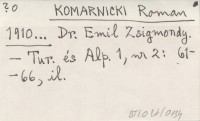 30 KOMARNICKI Roman
1910... Dr. Emil Zsigmondy.
– Tur. és Alp. 1, nr 2: 61-
-66, il.